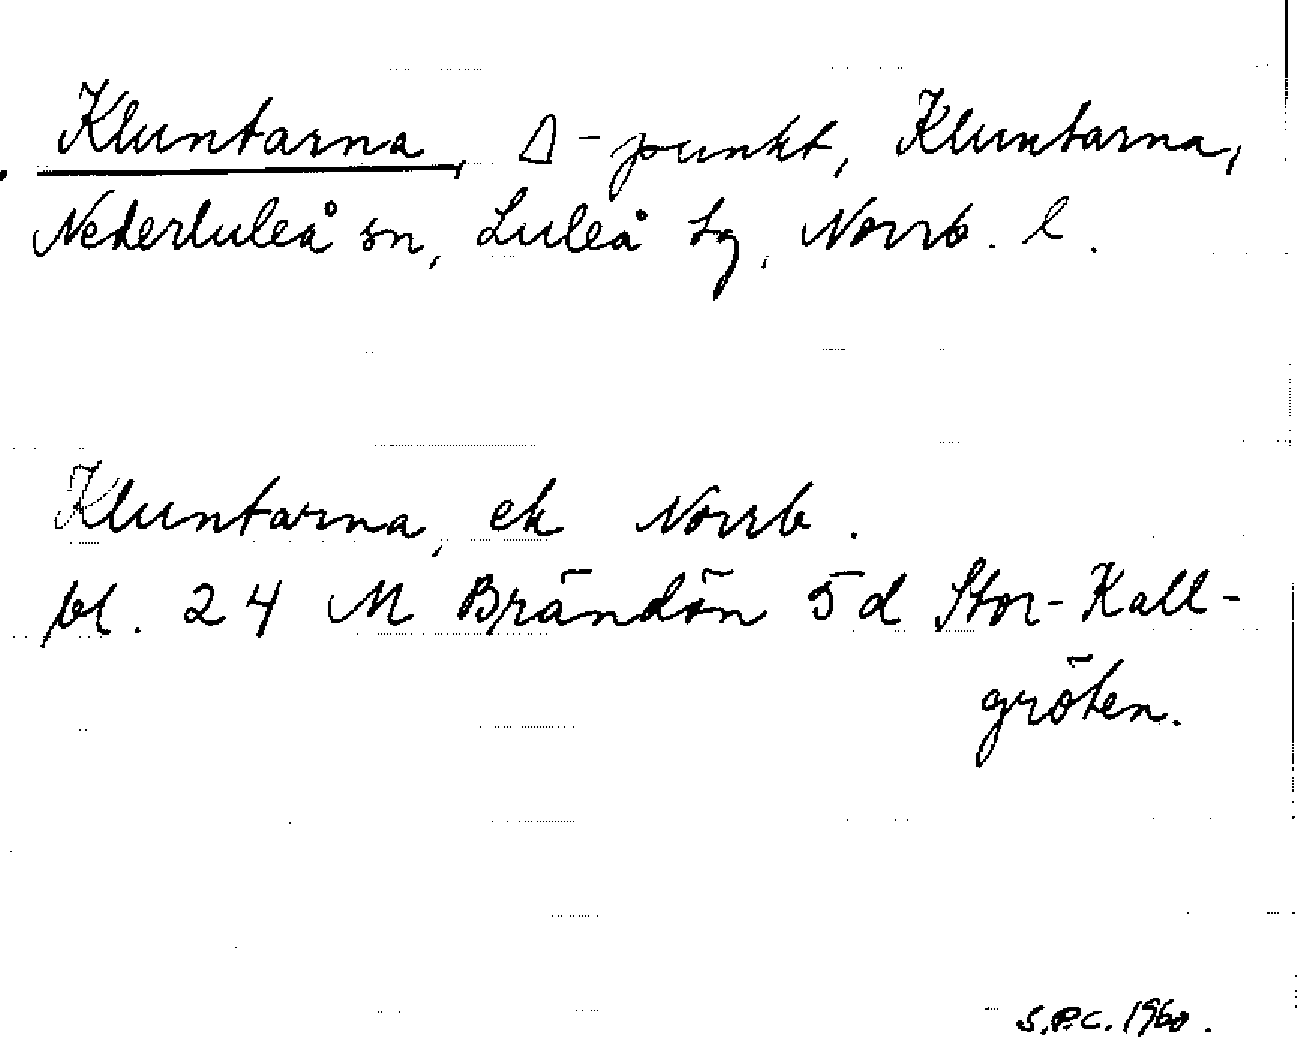 Kluntarna, Δ-punkt, Kluntarna,
Nederluleå sn, Luleå tg, Norrb. l.
Kluntarna, ek Norrb.
bl. 24 M Brändön 5d Stor-Kall-
gröten.
S.P.C. 1960.